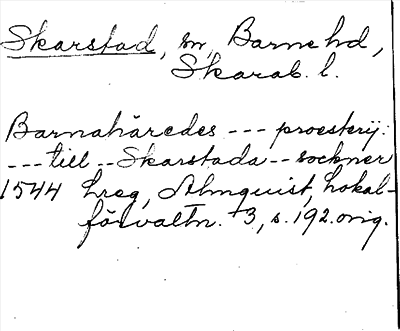 Skarstad, sn, Barne hd,
Skarab. l.
Barnahäredes --- proesterij:
--- till -- Skarstada -- sockner
1544 hreg, Almquist, Lokal-
förvaltn. 3, s. 192. orig.